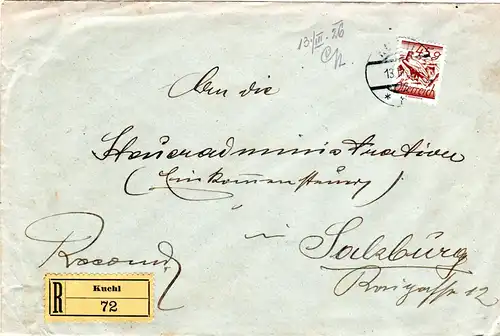 13/III. 26
An die
Steueradministration
(Einkommensteuer)
in Salzburg
Kaigasse 12
Recom.
R Kuchl
72
13